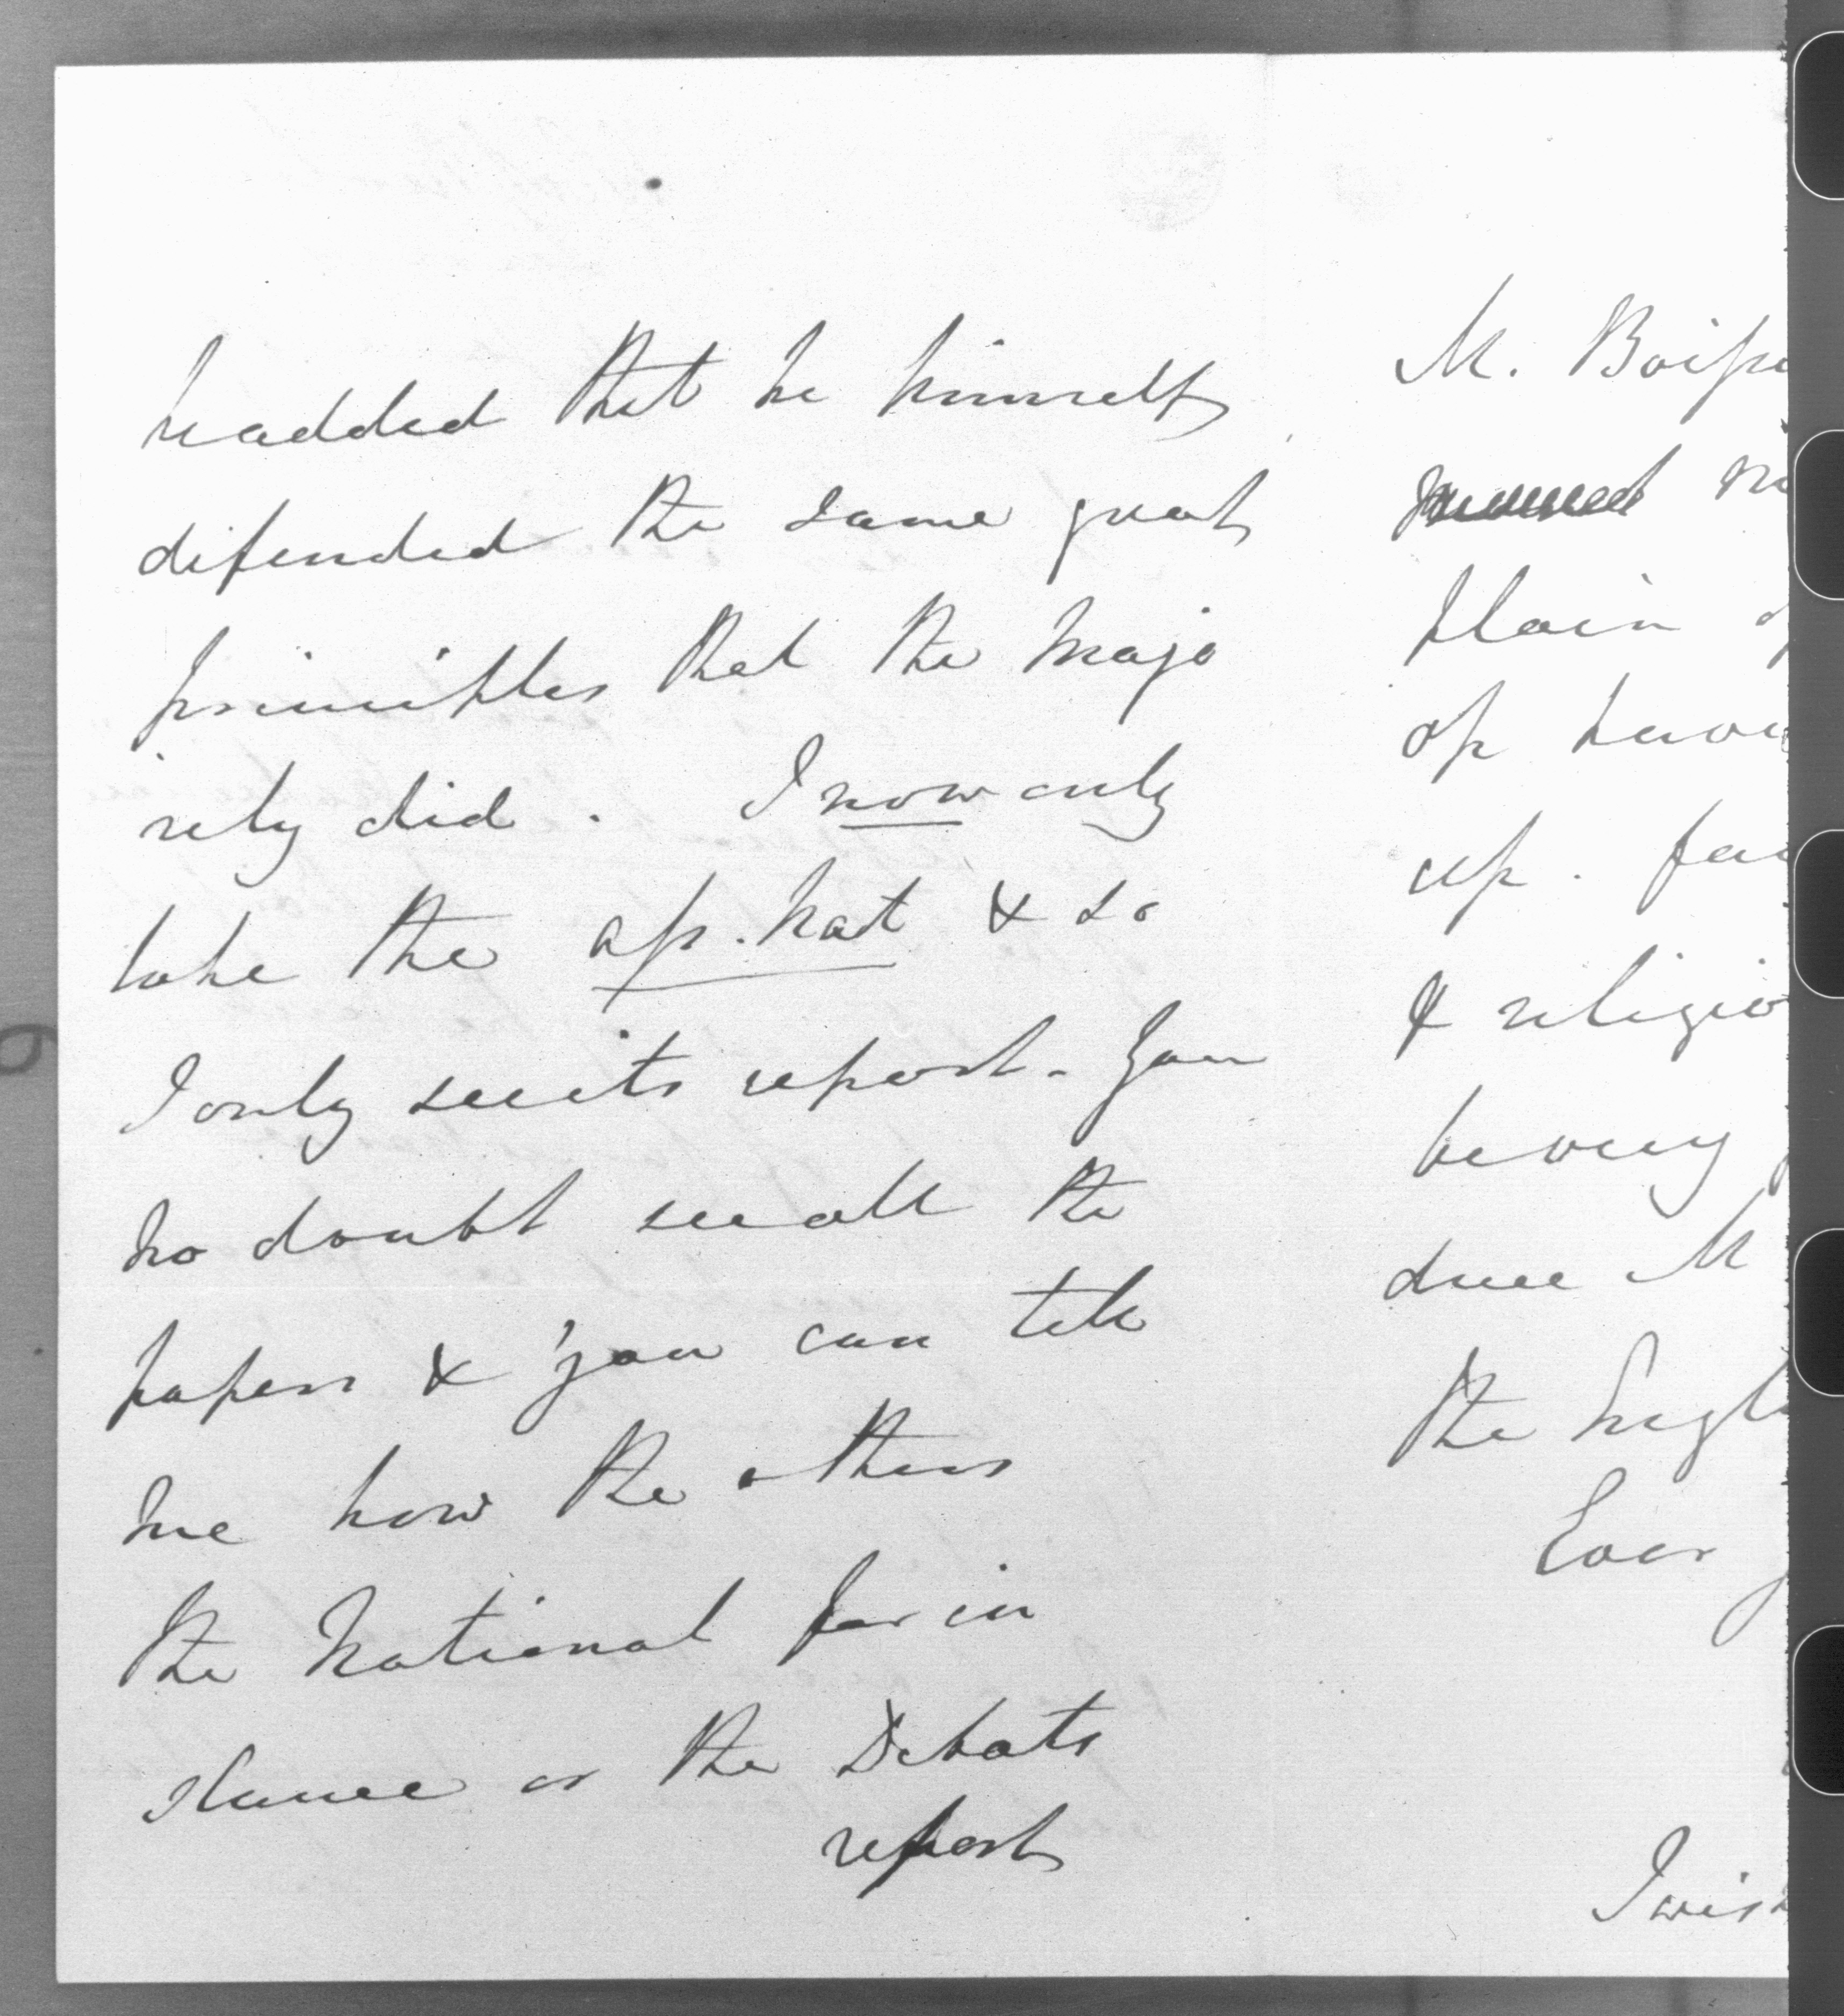 headded that he himself
difended the same great
principles that the Majo
rity did. I now only
take the ass. nat & so
I only see its report. You
no doubt see all the
papers & you can tell
me how the others
the National for in
stance or the Debats
report
M. Boiss
plain
of havi
up. fa
& religio
be very
duce M
the Engl
Ever
I wish